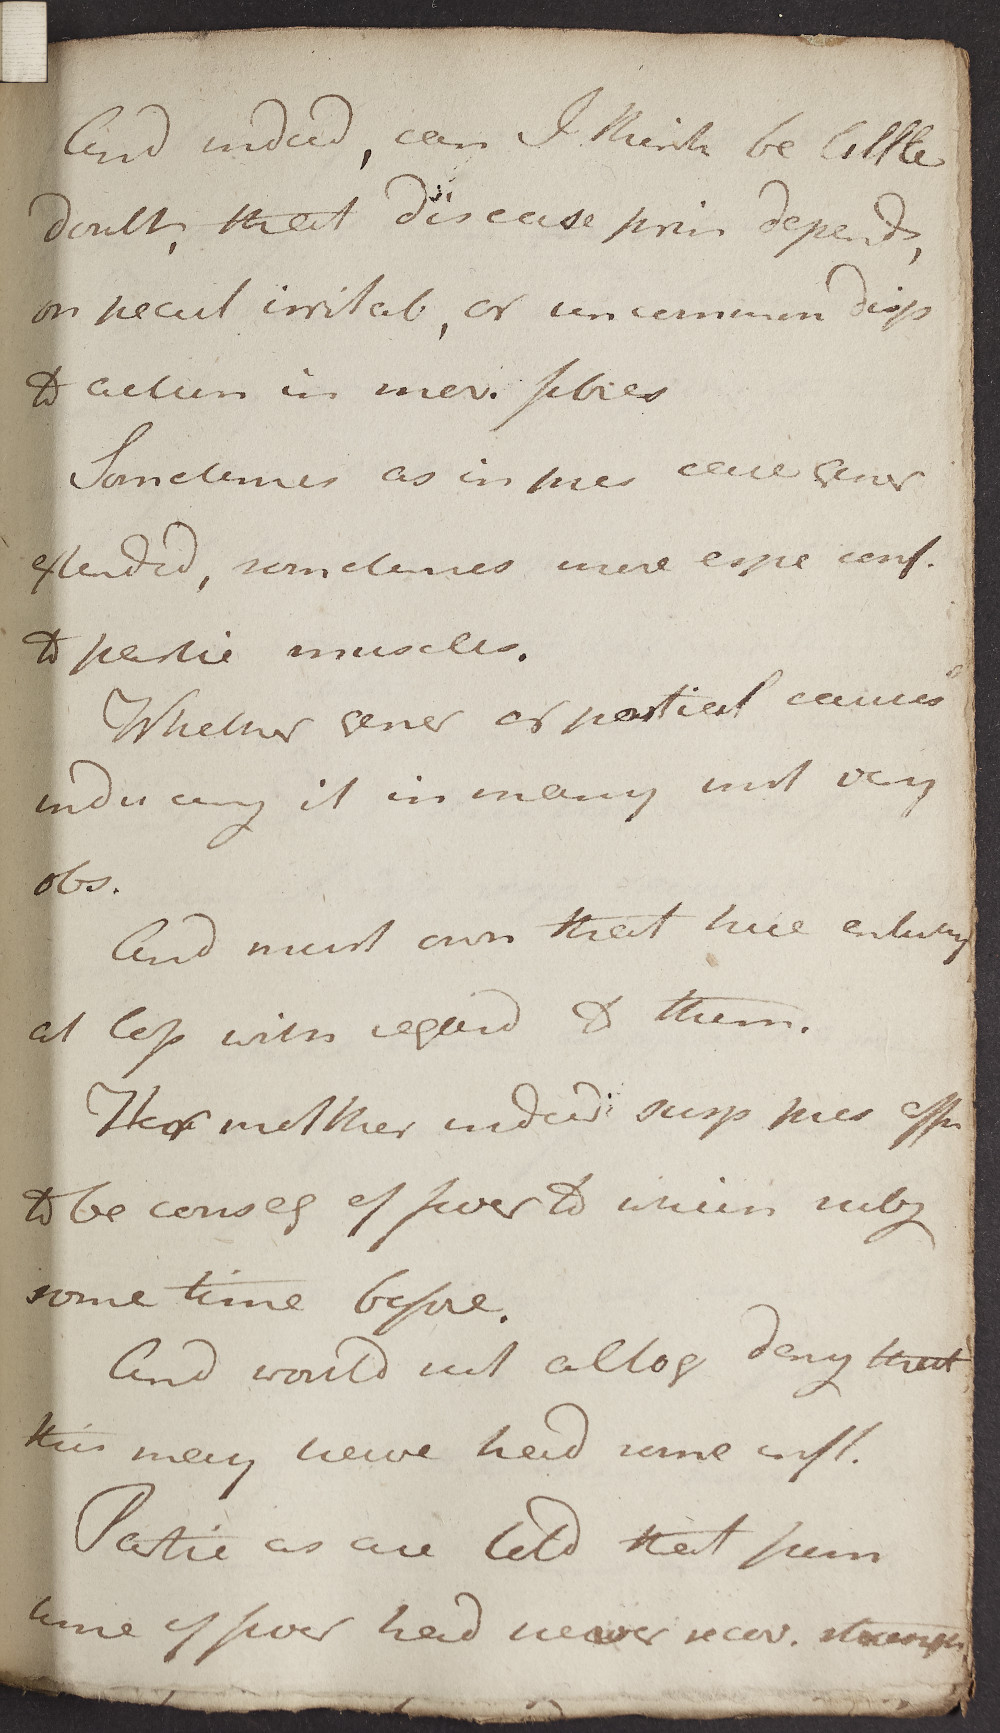 And indeed, can I think be little
doubt, that disease prin depends,
on pecul irritab, or uncommon disp
to action in mov. fibres
Sometimes as in pres case gener
extended, sometimes more espe conf.
to partic muscles.
Whether gener or partial causes
inducing it in many not very
obs.
And must own that here entirely
at loss with regard to them.
Her mother indeed susp pres affn
to be conseq of fever to which subj
some time before.
And would not altog deny that
this may have had some infl.
Partic as are told that from
time of fever had never recov. strength